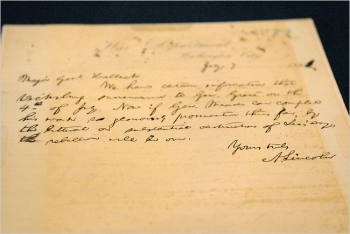 War Department
Washington City,
July 7
Major Genl Halleck
We have certain information that
Vicksburg surrendered to Gen. Grant on the
4th of July. Now if Gen. Meade can complete
his work so gloriously prosecuted thus far, by
the literal or substantial destruction of Lee's army
the rebellion will be over.
Yours truly
A. Lincoln